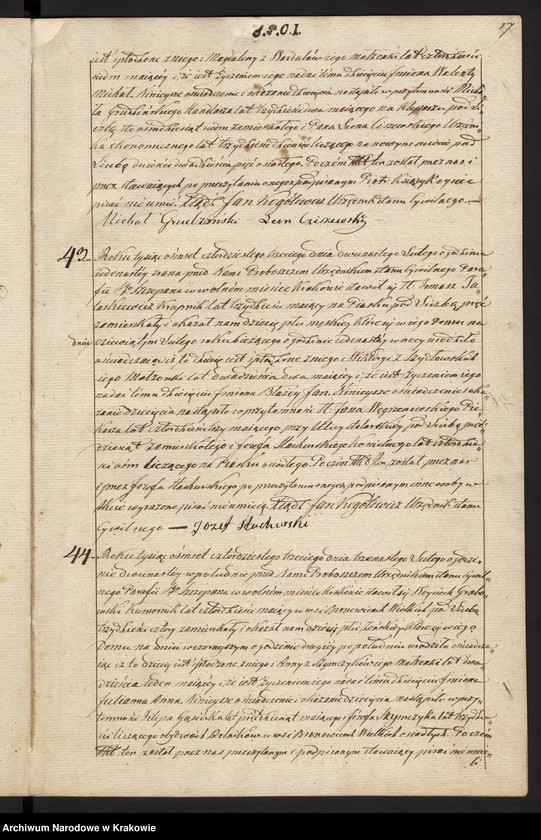 S.P.O.I.
17
jest spłodzone z niego i Magdaleny z małżonki lat czterdzieści
siedm mającej i, że jest życzeniem jego nadać temu dziecięciu Imiona Walenty
Michał. Niniejsze oświadczenie i okazanie dziecięcia nastąpiło w przytomności Micha-
ła Grudzińskiego lat trzydzieści dwa mającego na Kleparzu pod li-
czbą sto ośmdziesiąt siedm zamieszkałego i Pana Leona Ciszewskiego Urzędni-
ka Ekonomicznego lat trzydzieści liczącego na nowym mieście pod
Liczbą dwieście dwadzieścia pięć osiadłego. Poczem Akt ten został przez nas i
przez stawających po przeczytaniu onegoż podpisanym Piotr Książek ojciec
pisać nie umie. Xiądz Jan Rogólewicz Urzędnik stanu Cywilnego.—
Michał Grudziński — Leon Ciszewski
43. Roku tysiąc ośmset czterdziestego trzeciego dnia dwunastego Lutego o godzinie
jedenastej zrana przed Nami Proboszczem Urzędnikiem stanu Cywilnego Para-
fii Sgo Szczepana w wolném mieście Krakowie stawał się St. Tomasz
Krupnik lat trzydzieści mający na Piasku pod Liczbą pięć
zamieszkały i okazał nam dziecię płci męskiej które w jego Domu na
dniu dziewiątym Lutego roku bieżącego o godzinie jedenastej w nocy urodziło się
oświadczając iż to dziecię jest spłodzone z niego i Wiktoryi z
jego Małżonki lat dwadzieścia dwa mającej i, że jest życzeniem jego
nadać temu dziecięciu Imiona Błażej Jan. Niniejsze oświadczenie i oka-
zanie dziecięcia nastąpiło w przytomności St. Jana Węgrzanowskiego Pie-
karza lat czterdzieści trzy mającego przy Ulicy Dolarskiéj pod Liczbą pięć-
dziesiąt zamieszkałego i Józefa Stachurskiego lat czterdzie-
ści ośm liczącego na Piasku osiadłego. Poczem Akt ten został przez nas
i przez Józefa Stachurskiego po przeczytaniu onegoż podpisanym inne osoby w
Akcie wyrażone pisać nie umieją. Xiądz Jan Rogólewicz Urzędnik stanu
Cywilnego — Jozef Stachurski
44. Roku tysiąc ośmset czterdziestego trzeciego dnia trzynastego Lutego o godzi-
nie dwunastej w południe przed Nami Proboszczem Urzędnikiem stanu Cywil-
nego Parafii Sgo Szczepana w wolném mieście Krakowie stawał się Wojciech Grabo-
wski Komornik lat czterdzieści mający w wsi Bronowicach Wielkich pod Liczbą
trzydzieści cztery zamieszkały i okazał nam dziecię płci żeńskiej które w jego
Domu na dniu wczorajszym o godzinie drugiej po południu urodziło się oświadcza-
jąc iż to dziecię jest spłodzone z niego i Anny z Szymczyków jego małżonki lat dwa-
dzieścia jeden mającej i, że jest życzeniem jego nadać temu dziecięciu Imiona
Julianna Anna. Niniejsze oświadczenie i okazanie dziecięcia nastąpiło w przy-
tomności Filipa lat pięćdziesiąt mającego i Józefa Szymczyka lat trzydzie-
ści liczącego obydwóch w wsi Bronowicach Wielkich osiadłych. Poczem
Akt ten został przez nas przeczytanym i podpisanym stawający pisać nie umie-
li
Archiwum Narodowe w Krakowie